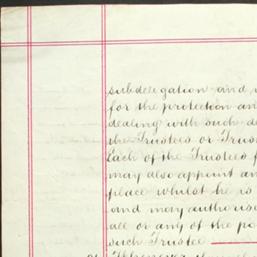 subdelegation and
for the protection an
dealing with such de
the Trustees or Trus
Each of the Trustees f
may also appoint an
place whilst he is
and may authorise
all or any of the po
such Trustee
Whenever